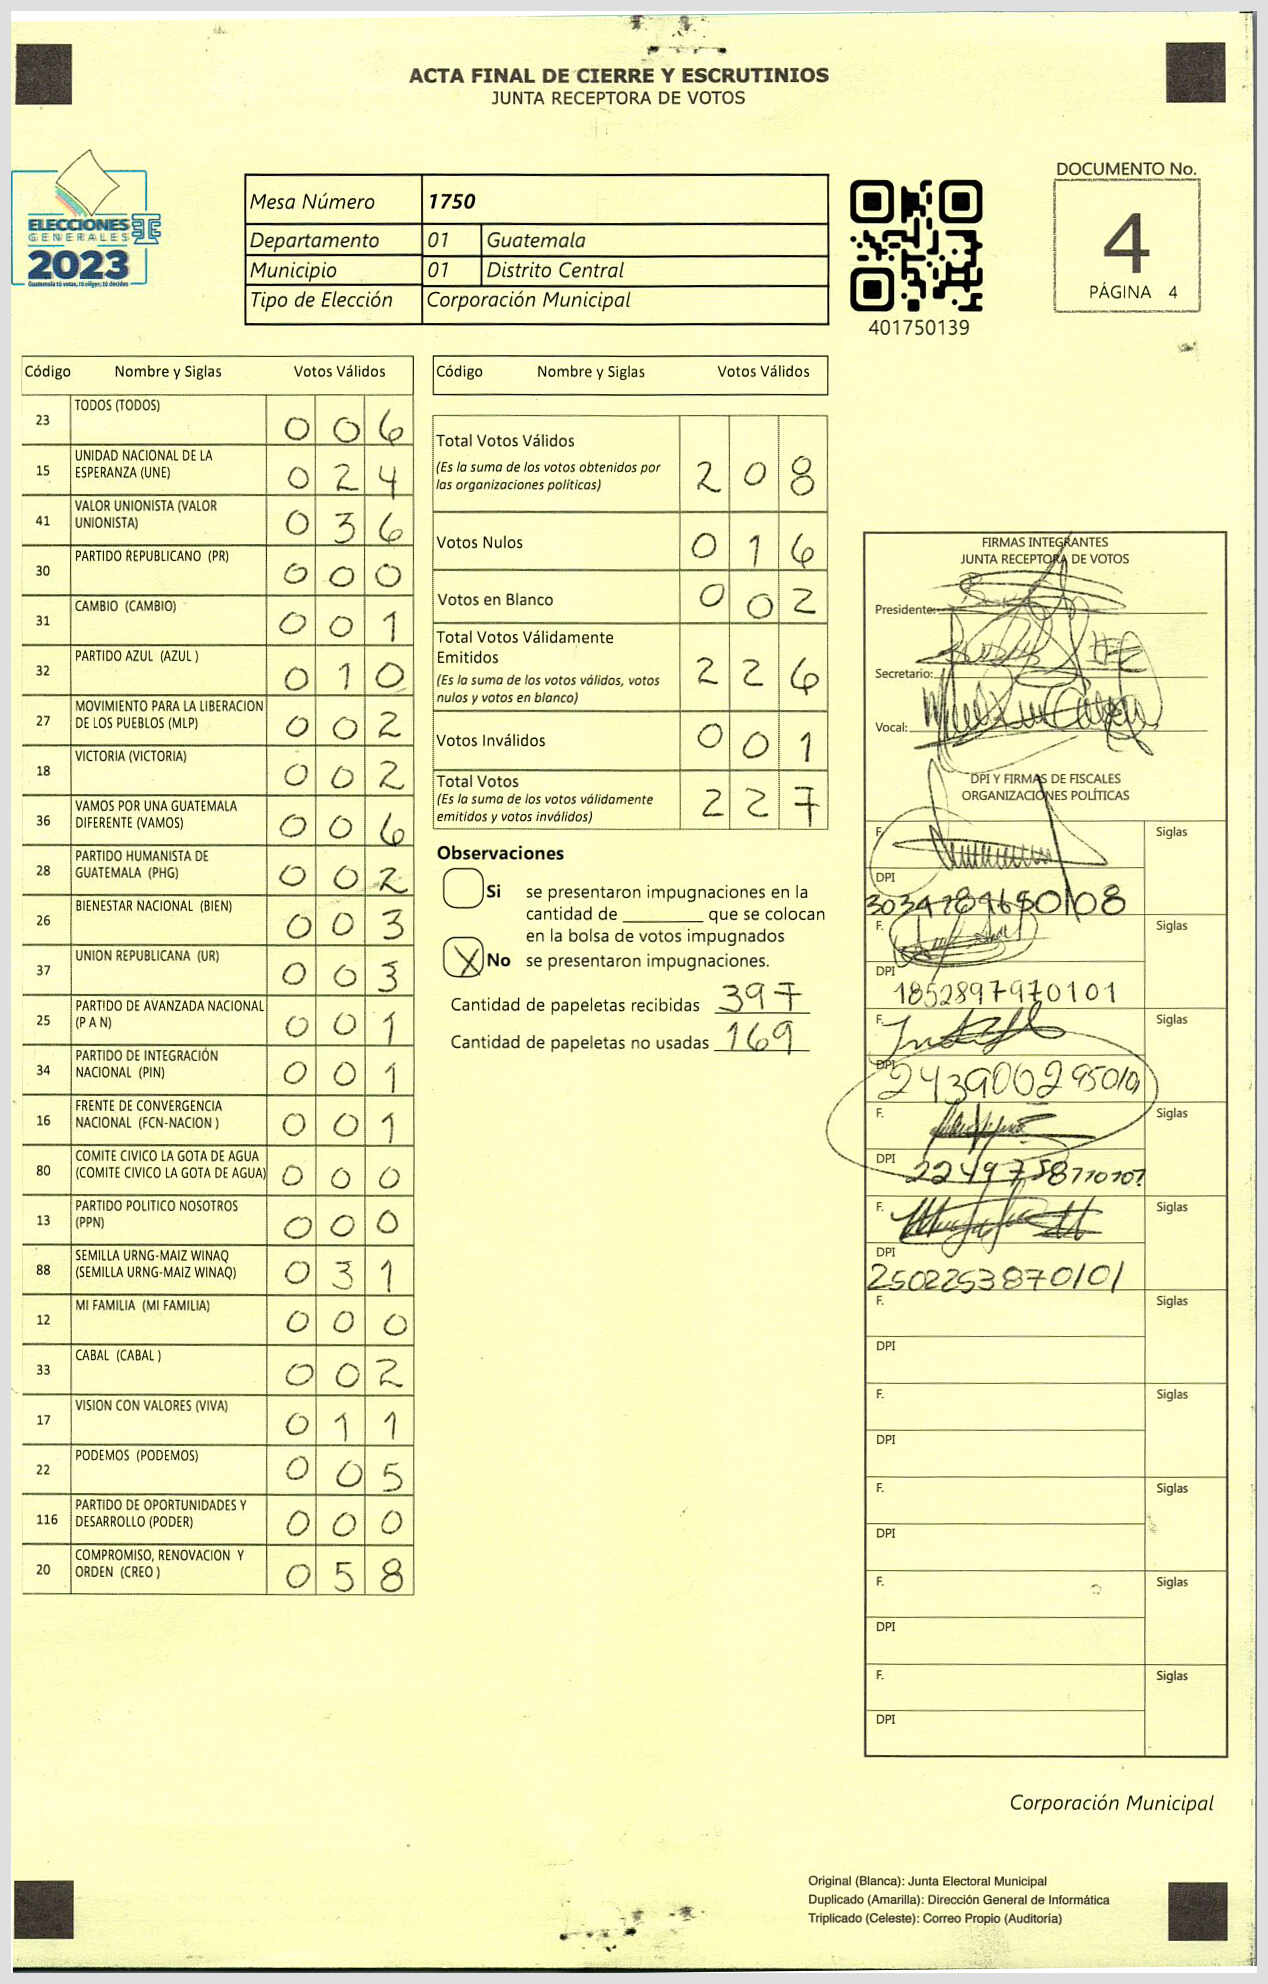 ACTA FINAL DE CIERRE Y ESCRUTINIOS
JUNTA RECEPTORA DE VOTOS
ELECCIONES
GENERALES
2023
Guatemala tú votas, tú eliges, tú decides
Mesa Número 1750
Departamento 01 Guatemala
Municipio 01 Distrito Central
Tipo de Elección Corporación Municipal
401750139
DOCUMENTO No.
4
PÁGINA 4
Código Nombre y Siglas Votos Válidos
23 TODOS (TODOS) 0 0 6
15 UNIDAD NACIONAL DE LA
ESPERANZA (UNE) 0 2 4
41 VALOR UNIONISTA (VALOR
UNIONISTA) 0 3 6
30 PARTIDO REPUBLICANO (PR) 0 0 0
31 CAMBIO (CAMBIO) 0 0 1
32 PARTIDO AZUL (AZUL ) 0 1 0
27 MOVIMIENTO PARA LA LIBERACION
DE LOS PUEBLOS (MLP) 0 0 2
18 VICTORIA (VICTORIA) 0 0 2
36 VAMOS POR UNA GUATEMALA
DIFERENTE (VAMOS) 0 0 6
28 PARTIDO HUMANISTA DE
GUATEMALA (PHG) 0 0 2
26 BIENESTAR NACIONAL (BIEN) 0 0 3
37 UNION REPUBLICANA (UR) 0 0 3
25 PARTIDO DE AVANZADA NACIONAL
(P A N) 0 0 1
34 PARTIDO DE INTEGRACIÓN
NACIONAL (PIN) 0 0 1
16 FRENTE DE CONVERGENCIA
NACIONAL (FCN-NACION ) 0 0 1
80 COMITE CIVICO LA GOTA DE AGUA
(COMITE CIVICO LA GOTA DE AGUA) 0 0 0
13 PARTIDO POLITICO NOSOTROS
(PPN) 0 0 0
88 SEMILLA URNG-MAIZ WINAQ
(SEMILLA URNG-MAIZ WINAQ) 0 3 1
12 MI FAMILIA (MI FAMILIA) 0 0 0
33 CABAL (CABAL ) 0 0 2
17 VISION CON VALORES (VIVA) 0 1 1
22 PODEMOS (PODEMOS) 0 0 5
116 PARTIDO DE OPORTUNIDADES Y
DESARROLLO (PODER) 0 0 0
20 COMPROMISO, RENOVACION Y
ORDEN (CREO ) 0 5 8
Código Nombre y Siglas Votos Válidos
Total Votos Válidos
(Es la suma de los votos obtenidos por
las organizaciones políticas) 2 0 8
Votos Nulos 0 1 6
Votos en Blanco 0 0 2
Total Votos Válidamente
Emitidos 2 2 6
(Es la suma de los votos válidos, votos
nulos y votos en blanco)
Votos Inválidos 0 0 1
Total Votos
(Es la suma de los votos válidamente
emitidos y votos inválidos) 2 2 7
Observaciones
Si se presentaron impugnaciones en la
cantidad de ________ que se colocan
en la bolsa de votos impugnados
X No se presentaron impugnaciones.
Cantidad de papeletas recibidas 397
Cantidad de papeletas no usadas 169
FIRMAS INTEGRANTES
JUNTA RECEPTORA DE VOTOS
Presidente:
Secretario:
Vocal:
DPI Y FIRMAS DE FISCALES
ORGANIZACIONES POLÍTICAS
F. Siglas
DPI
F. Siglas
DPI
1852897970101
F. Siglas
DPI
F. Siglas
DPI
F. Siglas
DPI
2502253870101
F. Siglas
DPI
F. Siglas
DPI
F. Siglas
DPI
F. Siglas
DPI
F. Siglas
DPI
Corporación Municipal
Original (Blanca): Junta Electoral Municipal
Duplicado (Amarilla): Dirección General de Informática
Triplicado (Celeste): Correo Propio (Auditoría)